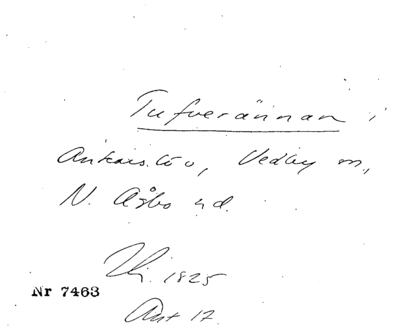 Tufverännan i
Ankarslöv, Vedby sn,
N. Åsbo hd.
1825
Nr 7463
Akt 17